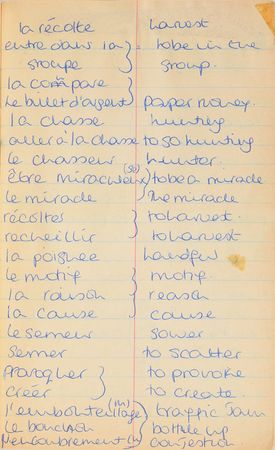 la récolte harvest
entre dans la = to be in the
groupe group.
la compare
le bullet d'argent paper money.
la chasse hunting
aller à la chasse to go hunting
le chasseur hunter.
être miraculeux (se) to be a miracle
le miracle the miracle
récolter to harvest.
recheillir to harvest
la poignee handful
le motif motif.
la raison reason
la cause cause
le semeur sower
semer to scatter
provoquer to provoke
créer to create.
l'embouteillage (m) traffic jam
le bouchon bottle up
l'encombrement (m) congestion.